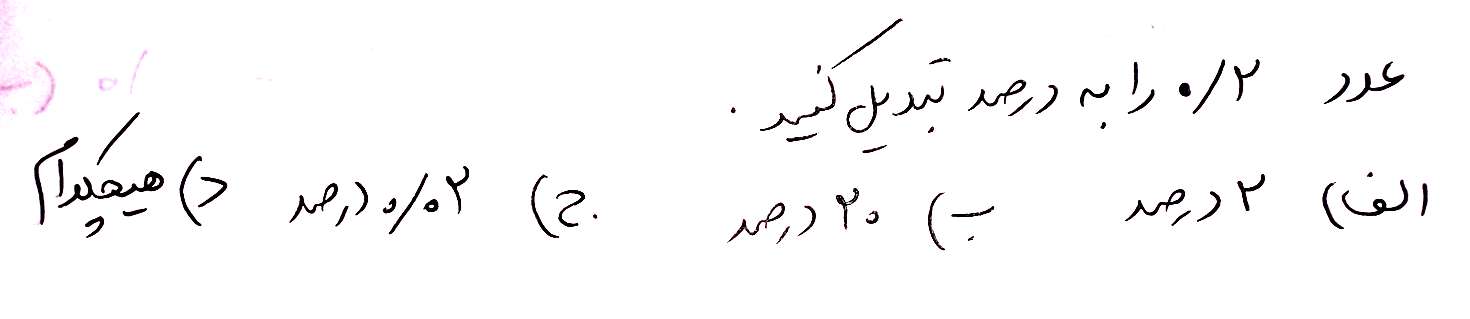 عدد ۰/۲ را به درصد تبدیل کنید.
الف) ۲ درصد ب) ۲۰ درصد ج) ۰/۰۲ درصد د) هیچکدام